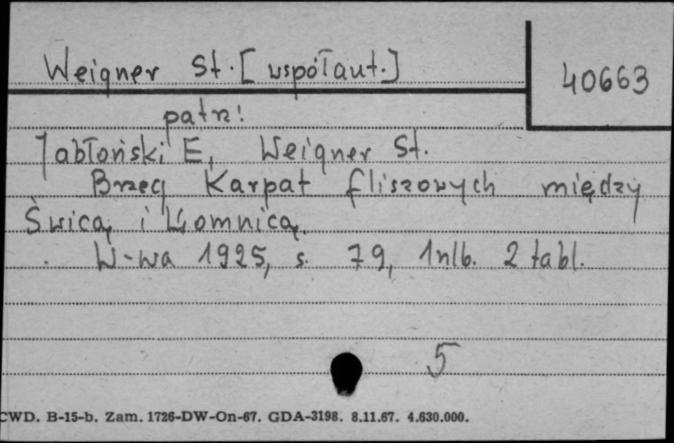 Weigner St. [współaut.]
40663
patrz!
Jabłoński E, Weigner St.
Brzeg Karpat fliszowych między
Świcą i Łomnicą.
W-wa 1925, s. 79, 1nlb. 2 tabl.
5
CWD. B-15-b. Zam. 1726-DW-On-67. GDA-3198. 8.11.67. 4.630.000.